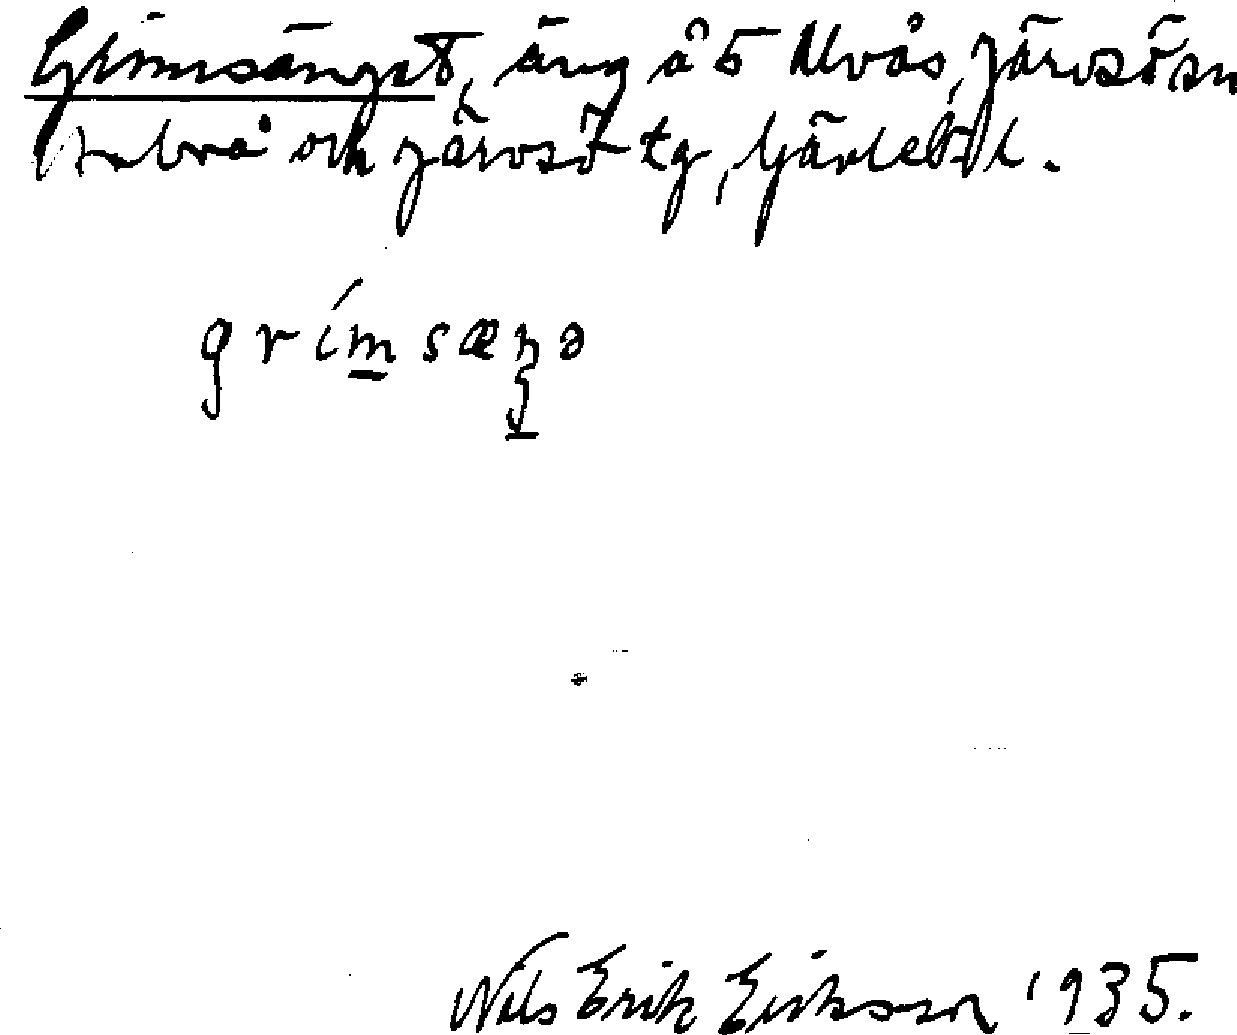 Grimsänget, äng å 5 Ulvås, Järvsö sn
Arbrå och Järvsö tg, Gävleb. l.
grímsæŋə
Nils Erik Eriksson 1935.